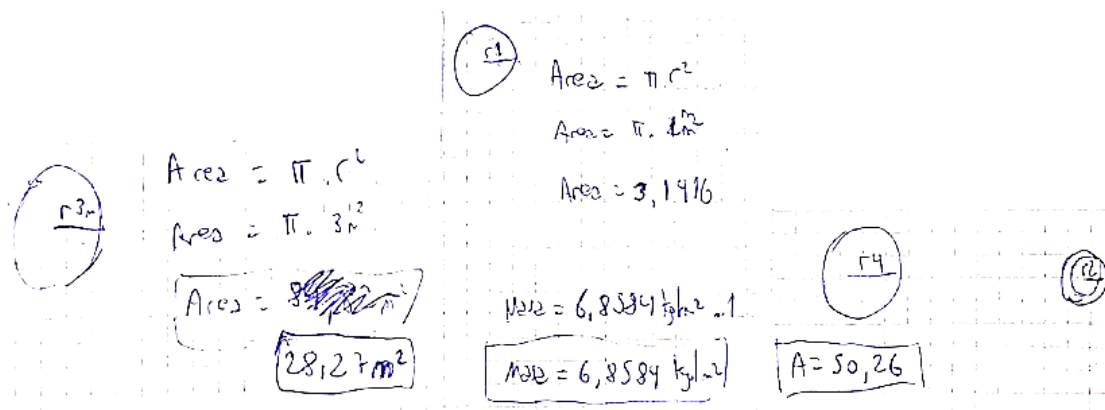 r3m
Area = π . r²
Area = π . 3m²
Area = 8
28,27 m²
r1
Area = π . r²
Area = π . 1m²
Area = 3,1416
Masa = 6,8584 kg/m² . 1
Masa = 6,8584 kg/m²
r4
A = 50,26
r2